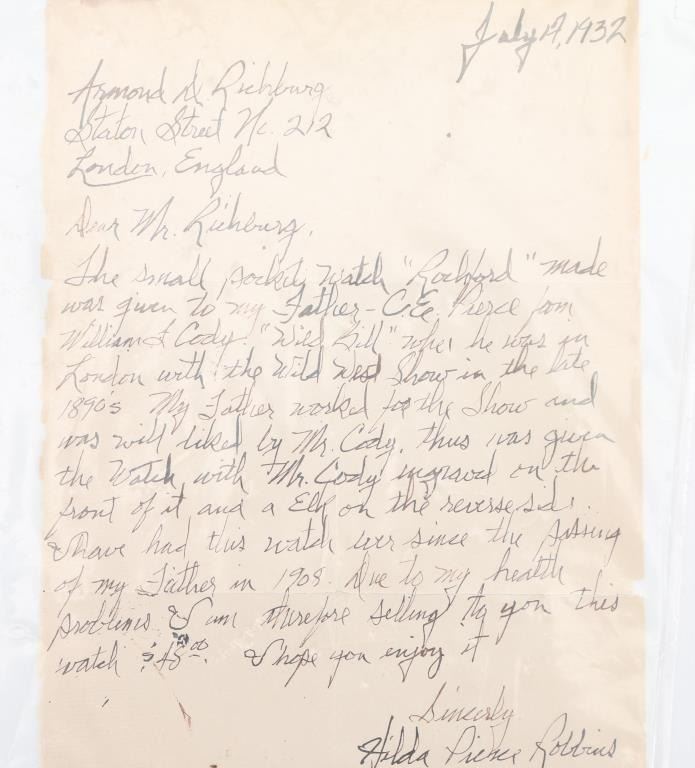 July 17, 1932
Armond D Richburg
Staton Street No. 212
London, England
Dear Mr. Richburg,
The small pocket watch "Rockford" made
was given to my Father - C.E. Pierce from
William F Cody. "Wild Bill" when he was in
London with the Wild West Show in the late
1890's My Father worked for the Show and
was will liked by Mr. Cody, thus was given
the Watch with Mr. Cody ingraved on the
front of it and a Elk on the reverse side.
I have had this watch ever since the passing
of my Father in 1908. Due to my health
problems I am therefore selling to you this
watch $48.00. I hope you enjoy it
Sincerly
Hilda Pierce Robbins